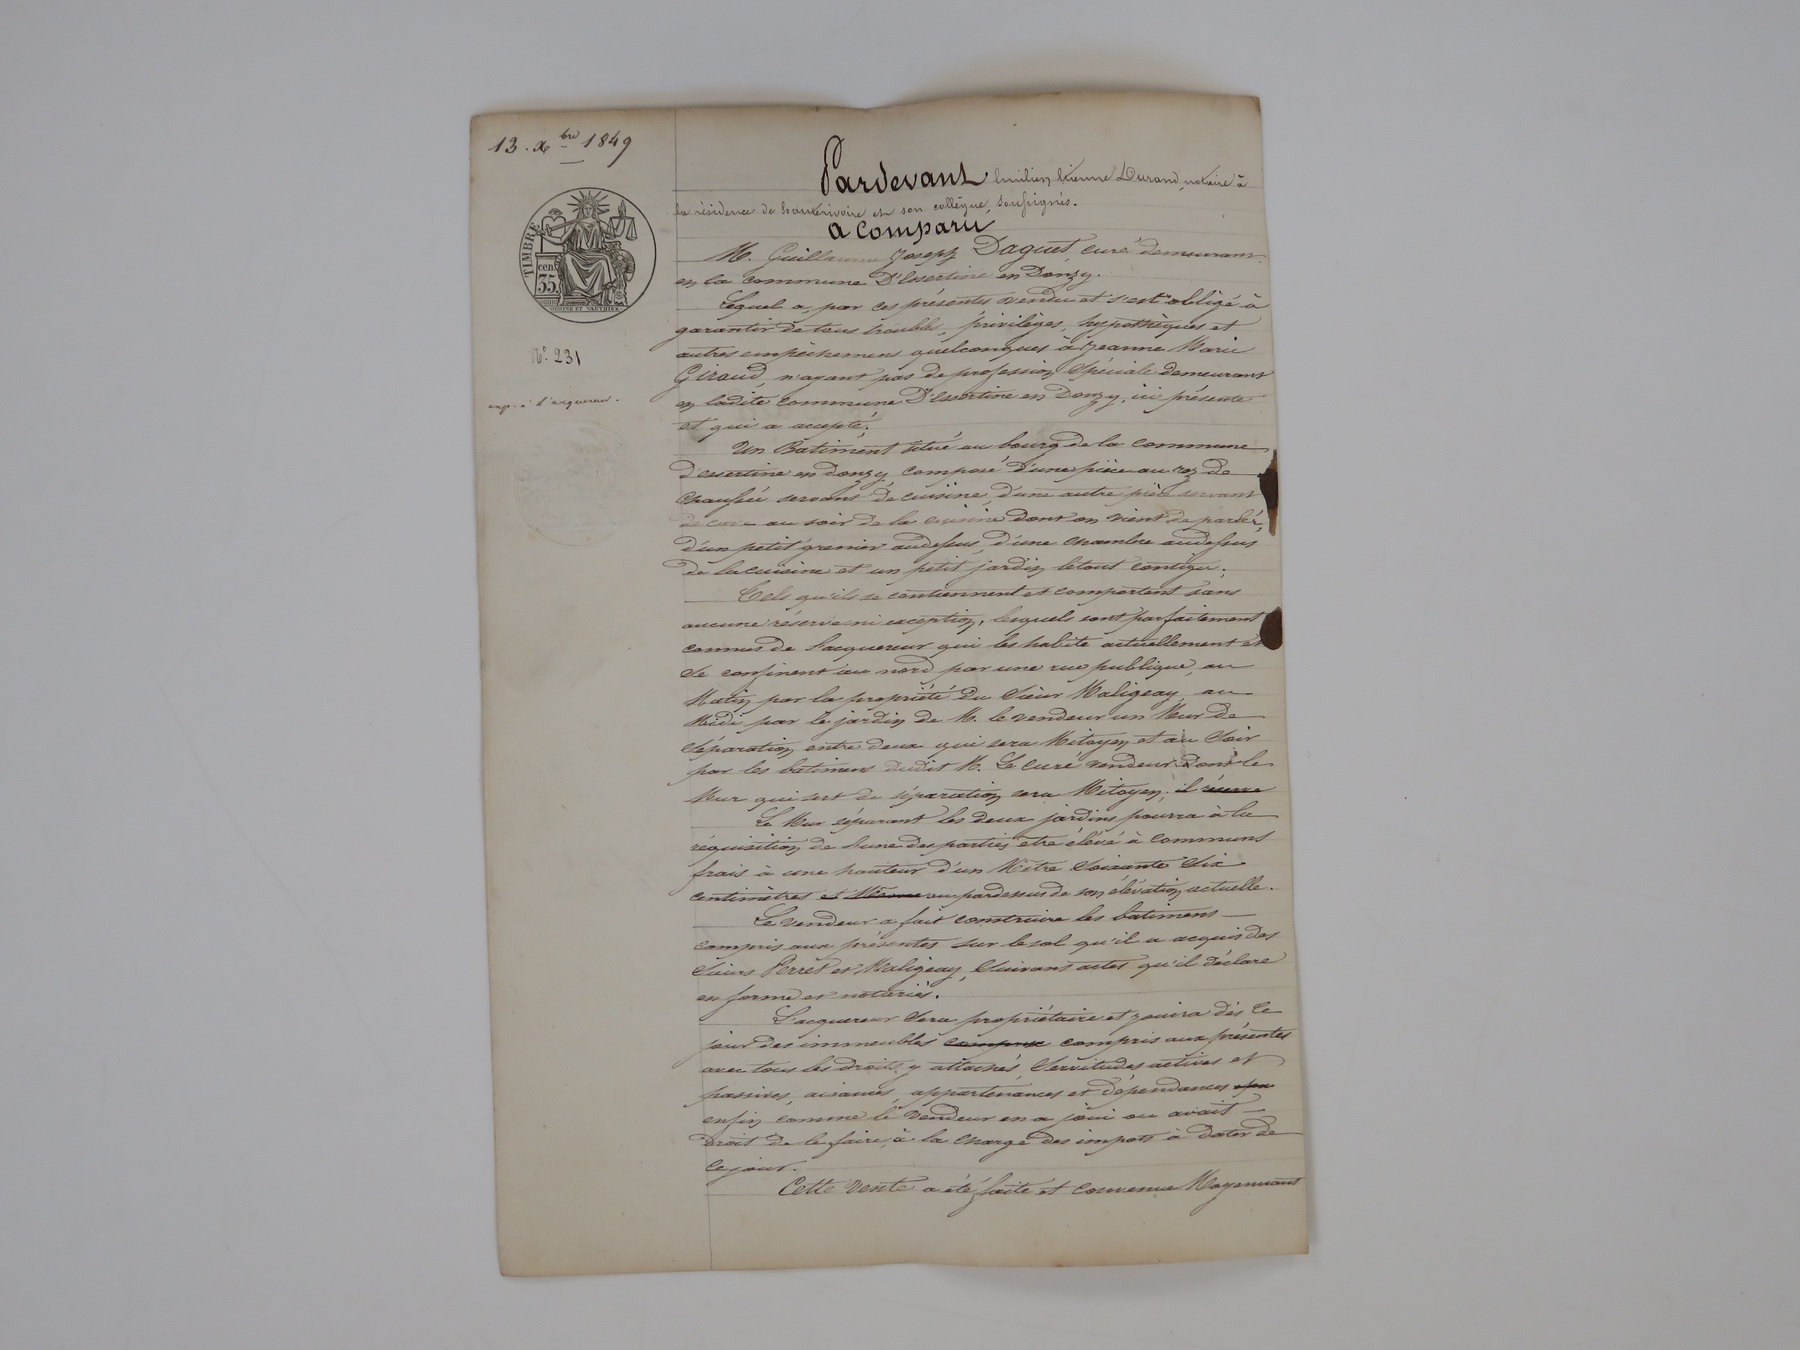 13. Xbre 1849
TIMBRE
cen.
35.
N° 231
exp. à l'acquereur.
Pardevant Emilien Etienne Durand, notaire à
la résidence de hauterivoire et son collègue, soussignés.
a comparu
M. Guillaume Joseph Daguet, curé demeurant
en la commune D'Essertine en Donzy.
Lequel a, par ces présentes vendu et s'est obligé à
garantir de tous troubles, privilèges, hypothèques et
autres empêchemens quelconques à Jeanne Marie
Giraud, n'ayant pas de profession Spéciale demeurant
en ladite commune D'Essertine en Donzy, ici présente
et qui a accepté;
Un Batiment situé au bourg de la commune
d'essertine en donzy, composé d'une pièce au rez de
chaussée servant de cuisine, d'une autre pièce servant
de cave au soir de la cuisine dont on vient de parler,
d'un petit grenier audessus, d'une chambre audessus
de la cuisine et un petit jardin le tout contigu;
Tels qu'ils se contiennent et comportent sans
aucune réserve ni exception, lesquels sont parfaitement
connus de l'acquereur qui les habite actuellement et
se confinent au nord par une rue publique, au
Matin par la propriété du Sieur Maligeay, au
Midi par le jardin de M. le vendeur un Mur de
Séparation entre deux qui sera Mitoyen et au Soir
par les batimens dudit M. Le curé vendeur dont le
Mur qui sert de séparation sera Mitoyen; il réserve
Le Mur séparant les deux jardins pourra à la
réquisition de l'une des parties etre élévé à communs
frais à une hauteur d'un Mètre Soixante Six
centimètres au pardessus de son élévation actuelle.
Le vendeur a fait construire les batimens
compris aux présentes sur le sol qu'il a acquis des
Sieurs Perret et Maligeay, Suivant actes qu'il déclare
en forme et notariés.
L'acquereur Sera propriétaire et jouira dès ce
jour des immeubles compris compris aux présentes
avec tous les droits y attachés, Servitudes actives et
passives, aisances, appartenances et dépendances
enfin comme le vendeur en a joui ou avait
droit de le faire, à la charge des impots à dater de
ce jour.
Cette vente a été faite et convenue Moyennant